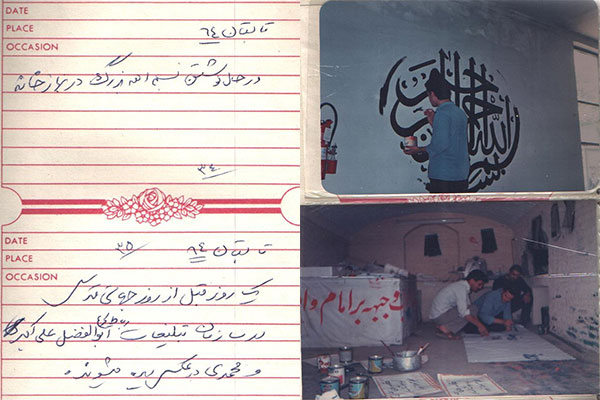 DATE
PLACE
OCCASION
تابستان ٦٤
در حال نوشتن بسم الله بزرگ در نهارخانه
٣٤
DATE
PLACE
OCCASION
تابستان ٦٤
٣٥
یک روز قبل از روز جهانی قدس
در سازمان تبلیغات ابوالفضل علی اکبر
و محمدی در عکس دیده میشوند
بسم الله الرحمن الرحیم
وجیهه بر امام